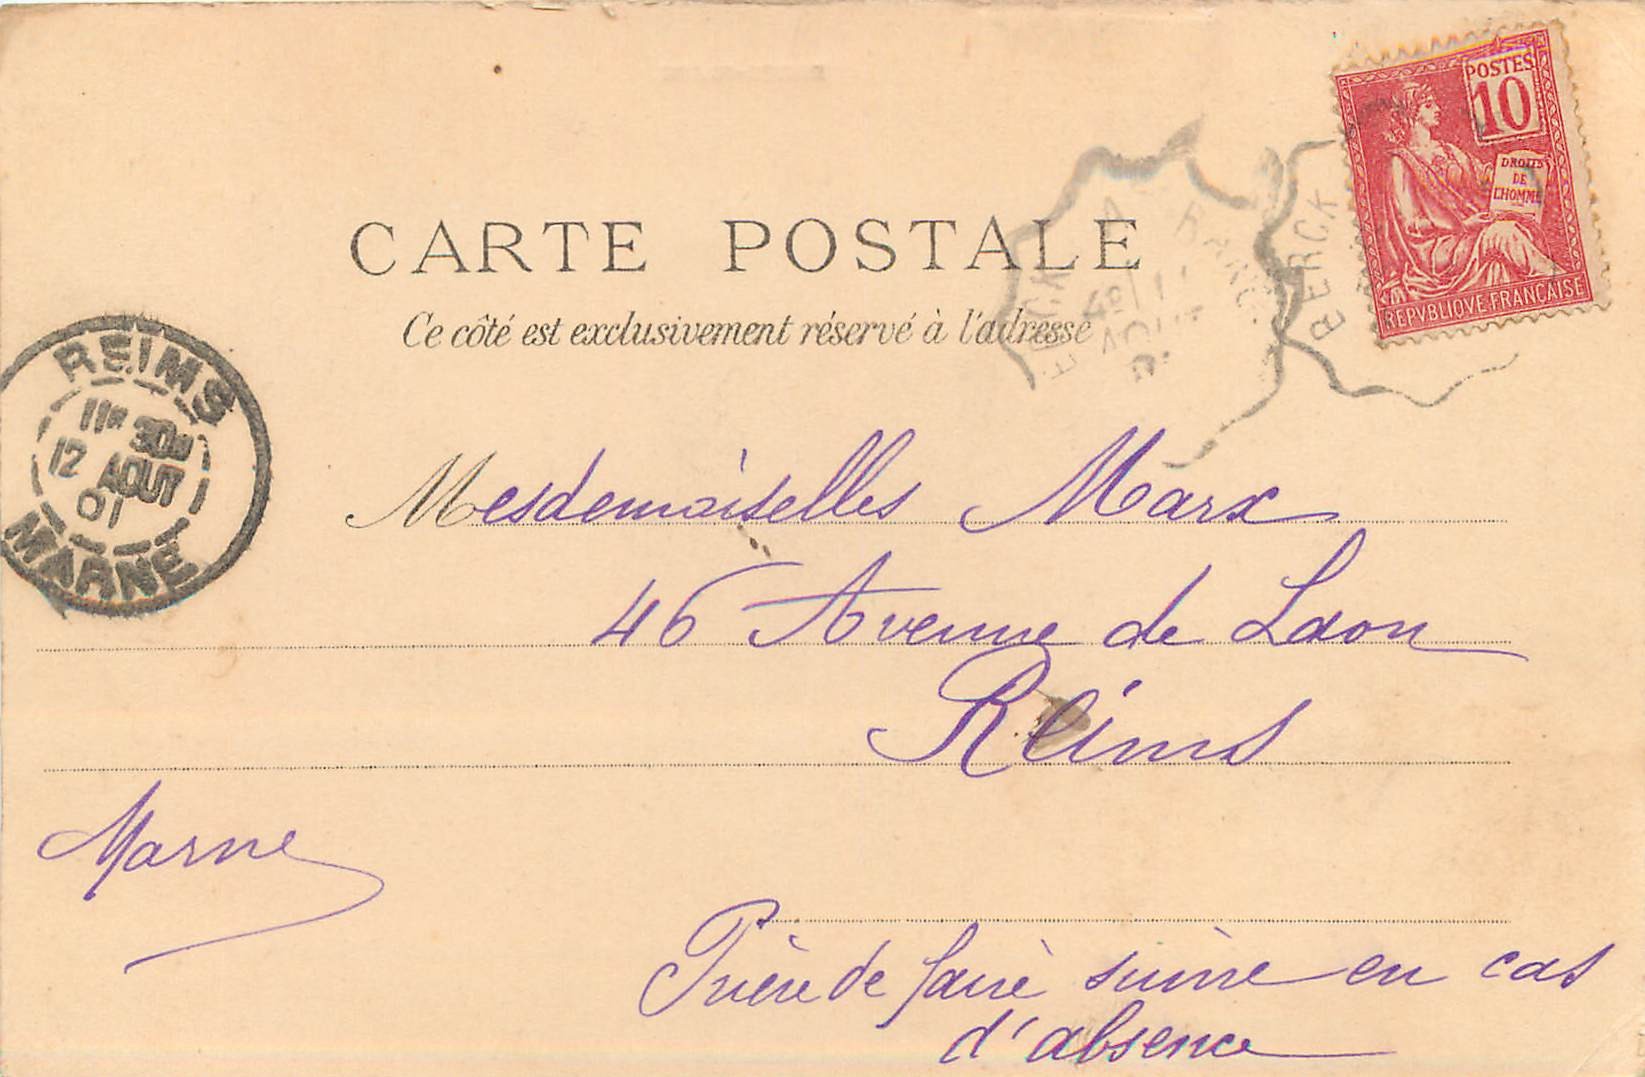 POSTES
10
DROITS
DE
L'HOMME
REPVBLIQVE FRANÇAISE
CARTE POSTALE
Ce côté est exclusivement réservé à l'adresse
BERCK A
4e
AOUT
BERCK
REIMS
11H 30M
12 AOUT
01
MARNE
Mesdemoiselles Marx
46 Avenue de Laon
Reims
Marne
Prière de faire suivre en cas
d'absence